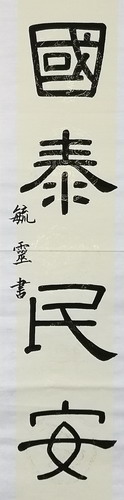 國泰民安
毓靈書